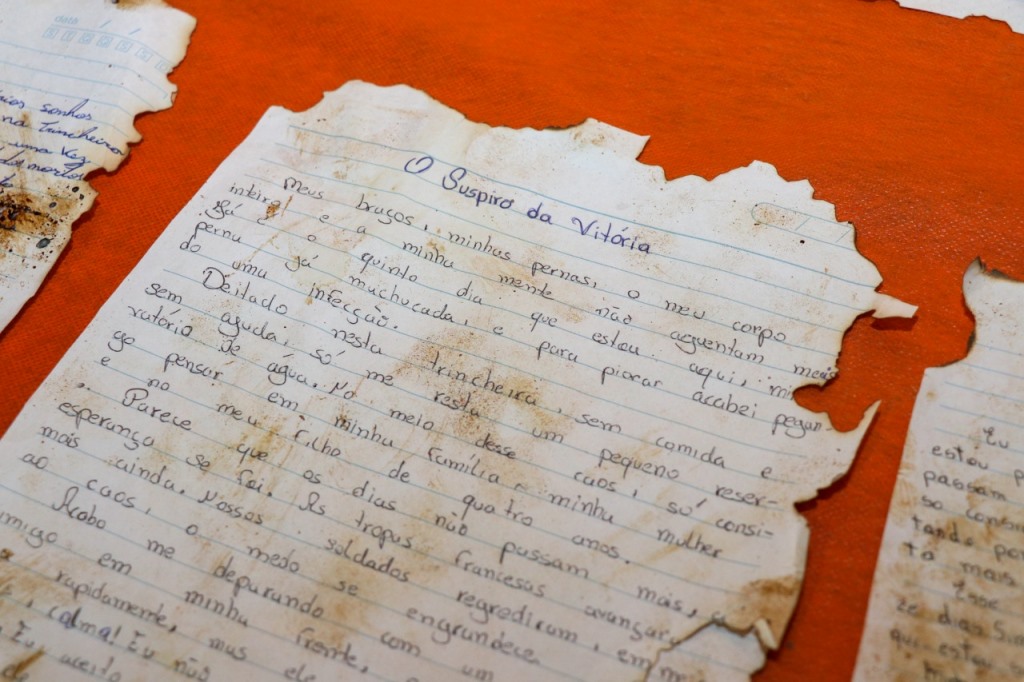 data
sonhos
na trincheira
uma vez
O Suspiro da Vitória
Meus braços, minhas pernas, o meu corpo
inteiro e a minha mente não aguentam mais
Já é o quinto dia que estou aqui, mi
perna já machucada, e para piorar acabei pegan-
do uma infecção.
Deitado nesta trincheira, sem comida e
sem aguda, só me resta um pequeno reser-
vatório de água. No meio desse caos, só consi-
go pensar em minha família, minha mulher
e no meu filho de quatro anos.
Parece que os dias não passam mais, a
esperança se foi. As tropas francesas avançar
mais ainda. Nossos soldados regrediram, em me
ao caos, o medo se engrandece.
Acabo me deparando com um
imigo em minha frente,
rapidamente, mas ele
calma! Eu não
Eu aceito
Eu
estou p
passam
so
tando por
to mais
Esse
ze dias
que estou